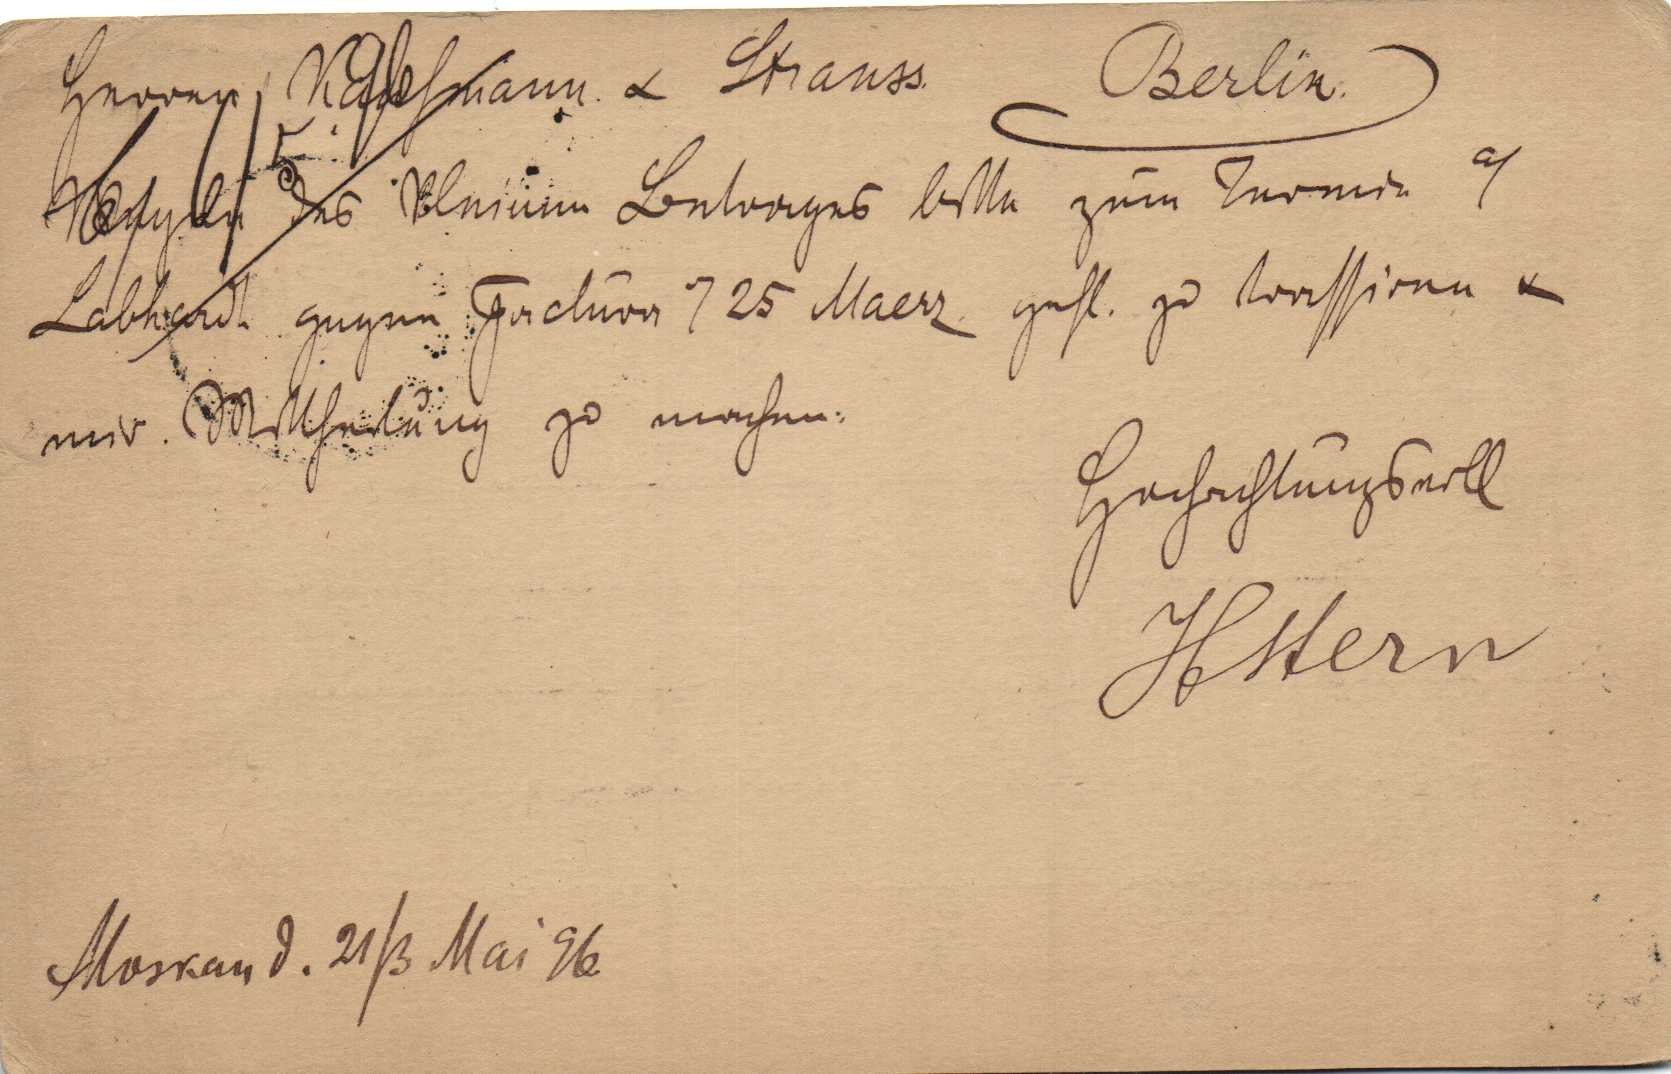 Herren Kaufmann & Strauss. Berlin.
Wegen des kleinen Betrages bitte zum Termin a/
Labhardt gegen Factura 25 Maerz gefl. zu trassiren &
mir Mittheilung zu machen.
Hochachtungsvoll
HStern
Moskau d. 21/3 Mai 96